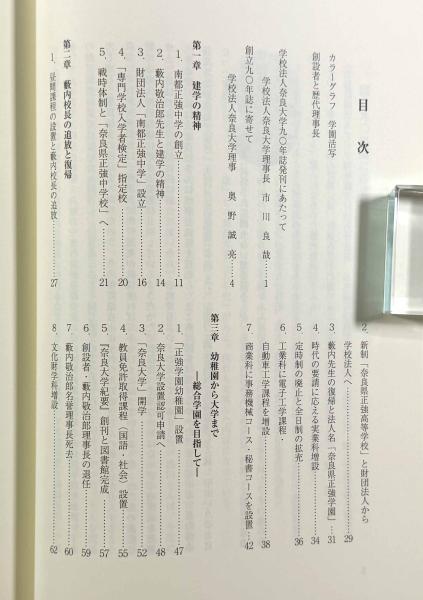 目次
カラーグラフ 学園活写
創設者と歴代理事長
学校法人奈良大学九〇年誌発刊にあたって
学校法人奈良大学理事長 市川良哉……1
創立九〇年誌に寄せて
学校法人奈良大学理事 奥野誠亮……4
第一章 建学の精神
1．南都正強中学の創立……11
2．藪内敬治郎先生と建学の精神……14
3．財団法人「南都正強中学」設立……16
4．「専門学校入学者検定」指定校……20
5．戦時体制と「奈良県正強中学校」へ……21
第二章 藪内校長の追放と復帰
1．昼間課程の設置と藪内校長の追放……27
2．新制「奈良県正強高等学校」と財団法人から
学校法人へ……29
3．藪内先生の復帰と法人名「奈良県正強学園」……31
4．時代の要請に応える実業科増設……34
5．定時制の廃止と全日制の拡充……36
6．工業科に電子工学課程・
自動車工学課程を増設……38
7．商業科に事務機械コース・秘書コースを設置……42
第三章 幼稚園から大学まで
―総合学園を目指して―
1．「正強学園幼稚園」設置……47
2．奈良大学設置認可申請へ……48
3．「奈良大学」開学……52
4．教員免許取得課程（国語・社会）設置……55
5．『奈良大学紀要』創刊と図書館完成……57
6．創設者・藪内敬治郎理事長の退任……59
7．藪内敬治郎名誉理事長死去……60
8．文化財学科増設……62